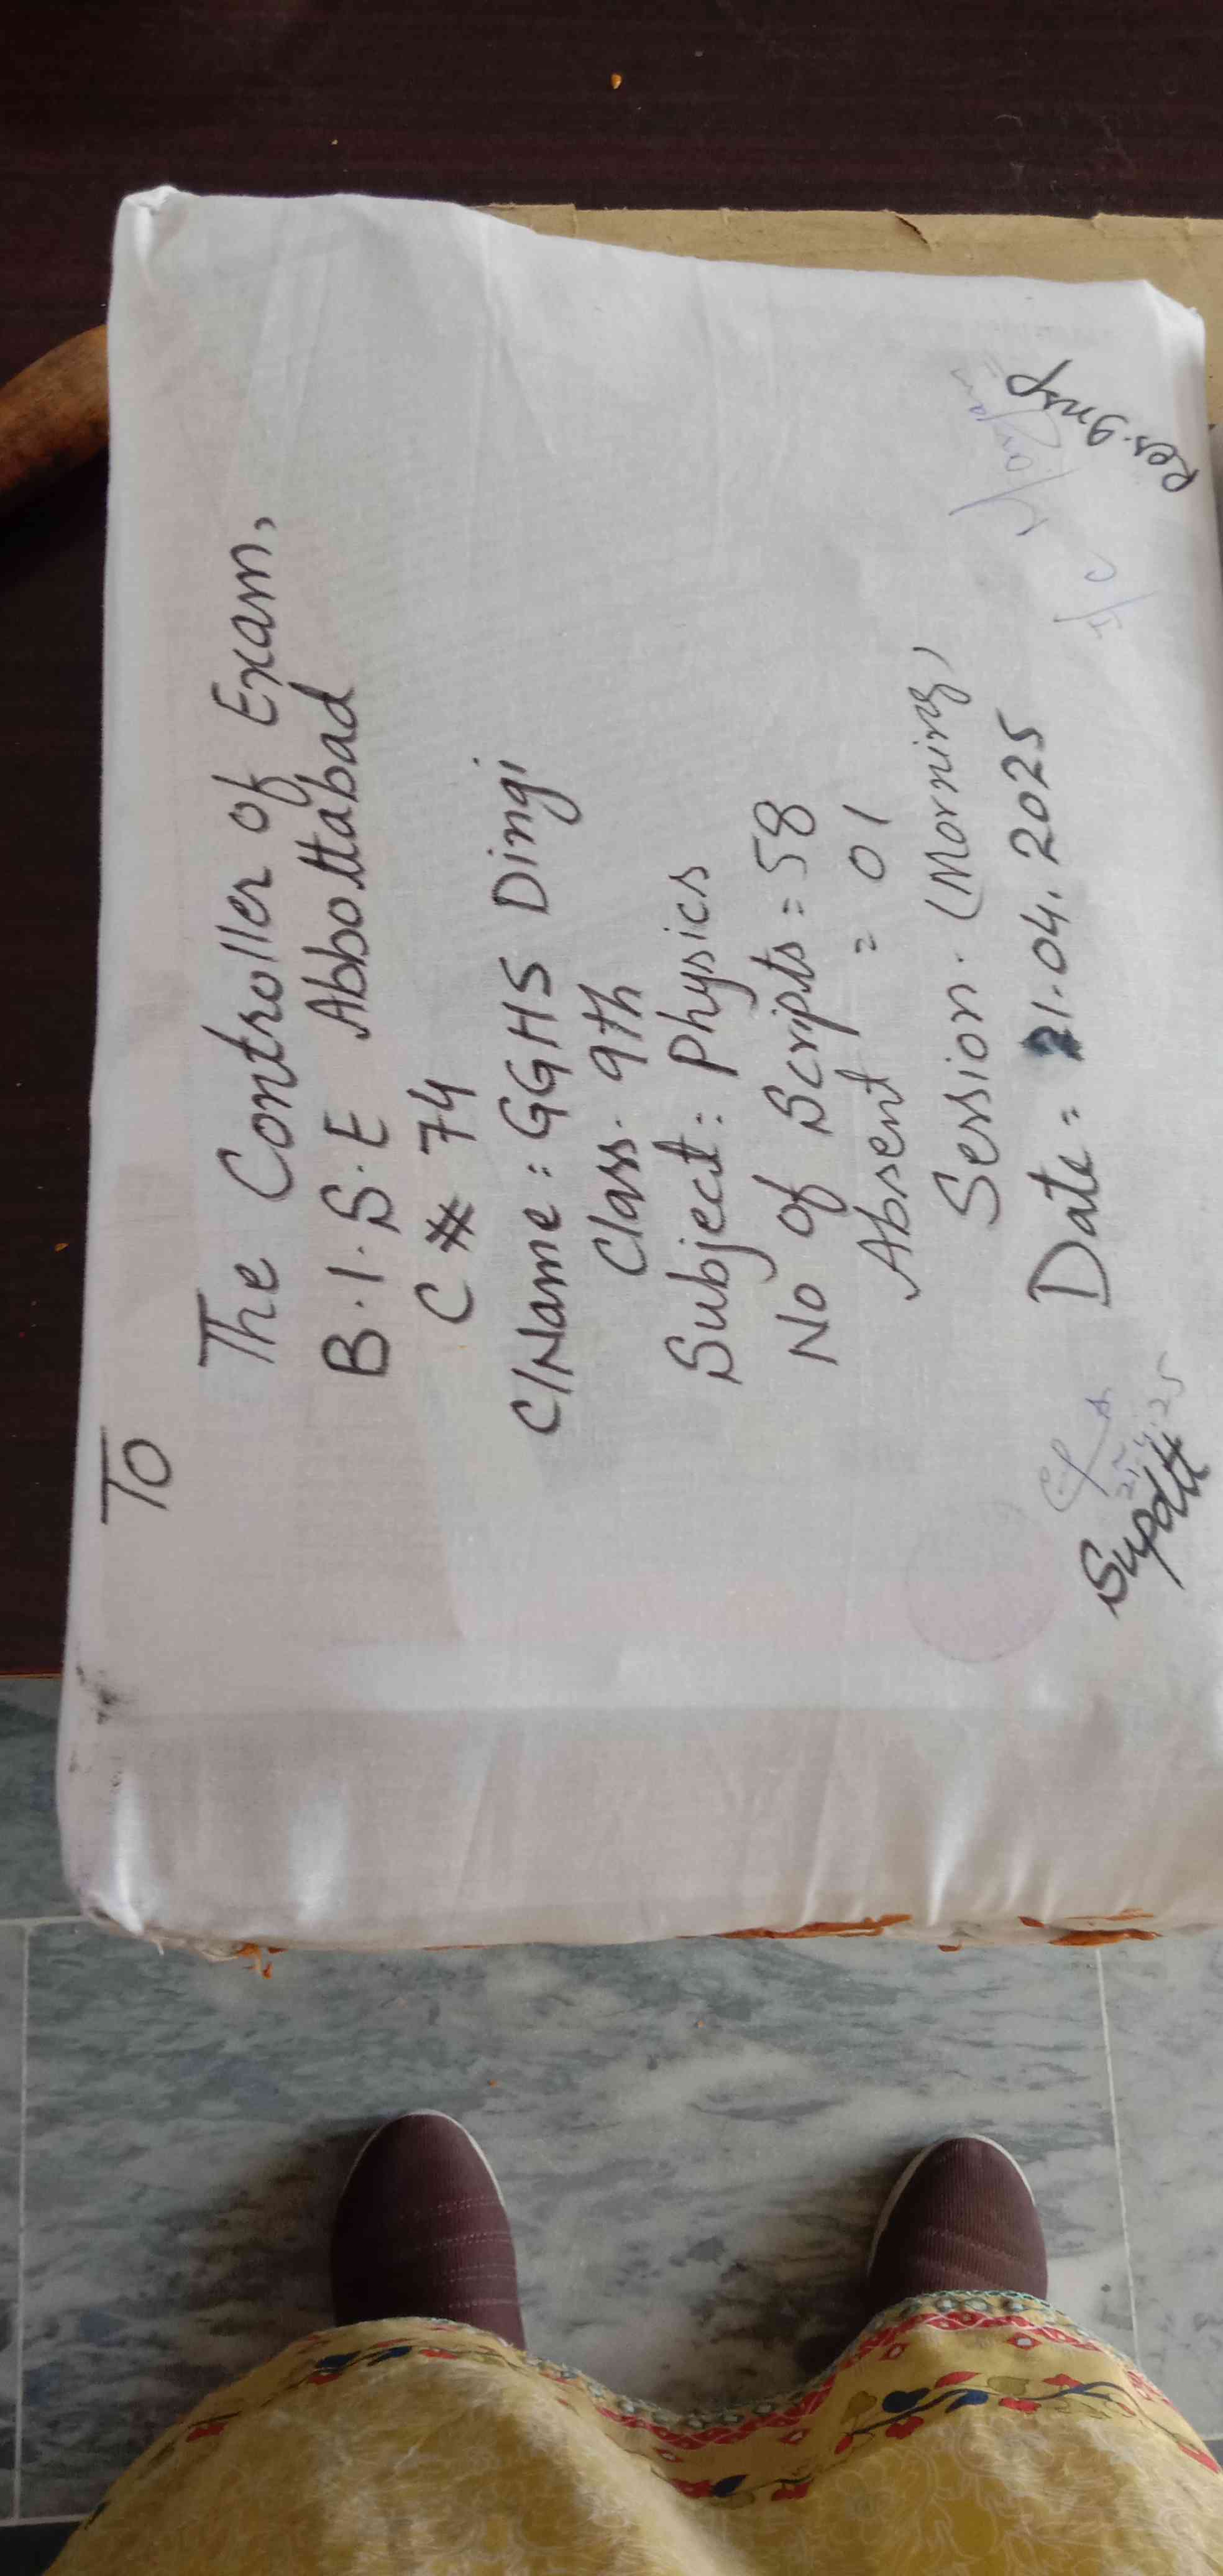 To
The Controller of Exam,
B.I.S.E Abbottabad
C # 74
C/Name: GGHS Dingi
Class. 9th
Subject: Physics
No of Scripts = 58
Absent = 01
Session. (Morning)
Date = 21.04.2025
21.4.25
Supdtt
Res. Insp